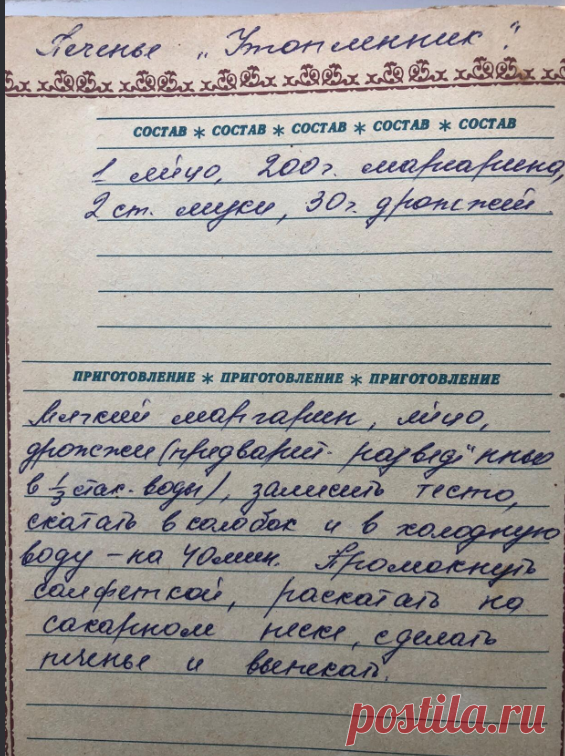 Печенье „Утопленник".
СОСТАВ * СОСТАВ * СОСТАВ * СОСТАВ * СОСТАВ
1 яйцо, 200 г. маргарина,
2 ст. муки, 30 г. дрожжей.
ПРИГОТОВЛЕНИЕ * ПРИГОТОВЛЕНИЕ * ПРИГОТОВЛЕНИЕ
Мягкий маргарин, яйцо,
дрожжи (предварит. разведённые
в 1/3 стак. воды), замесить тесто,
скатать в колобок и в холодную
воду – на 40 мин. Промокнуть
салфеткой, раскатать на
сахарном песке, сделать
печенье и выпекать.
postila.ru